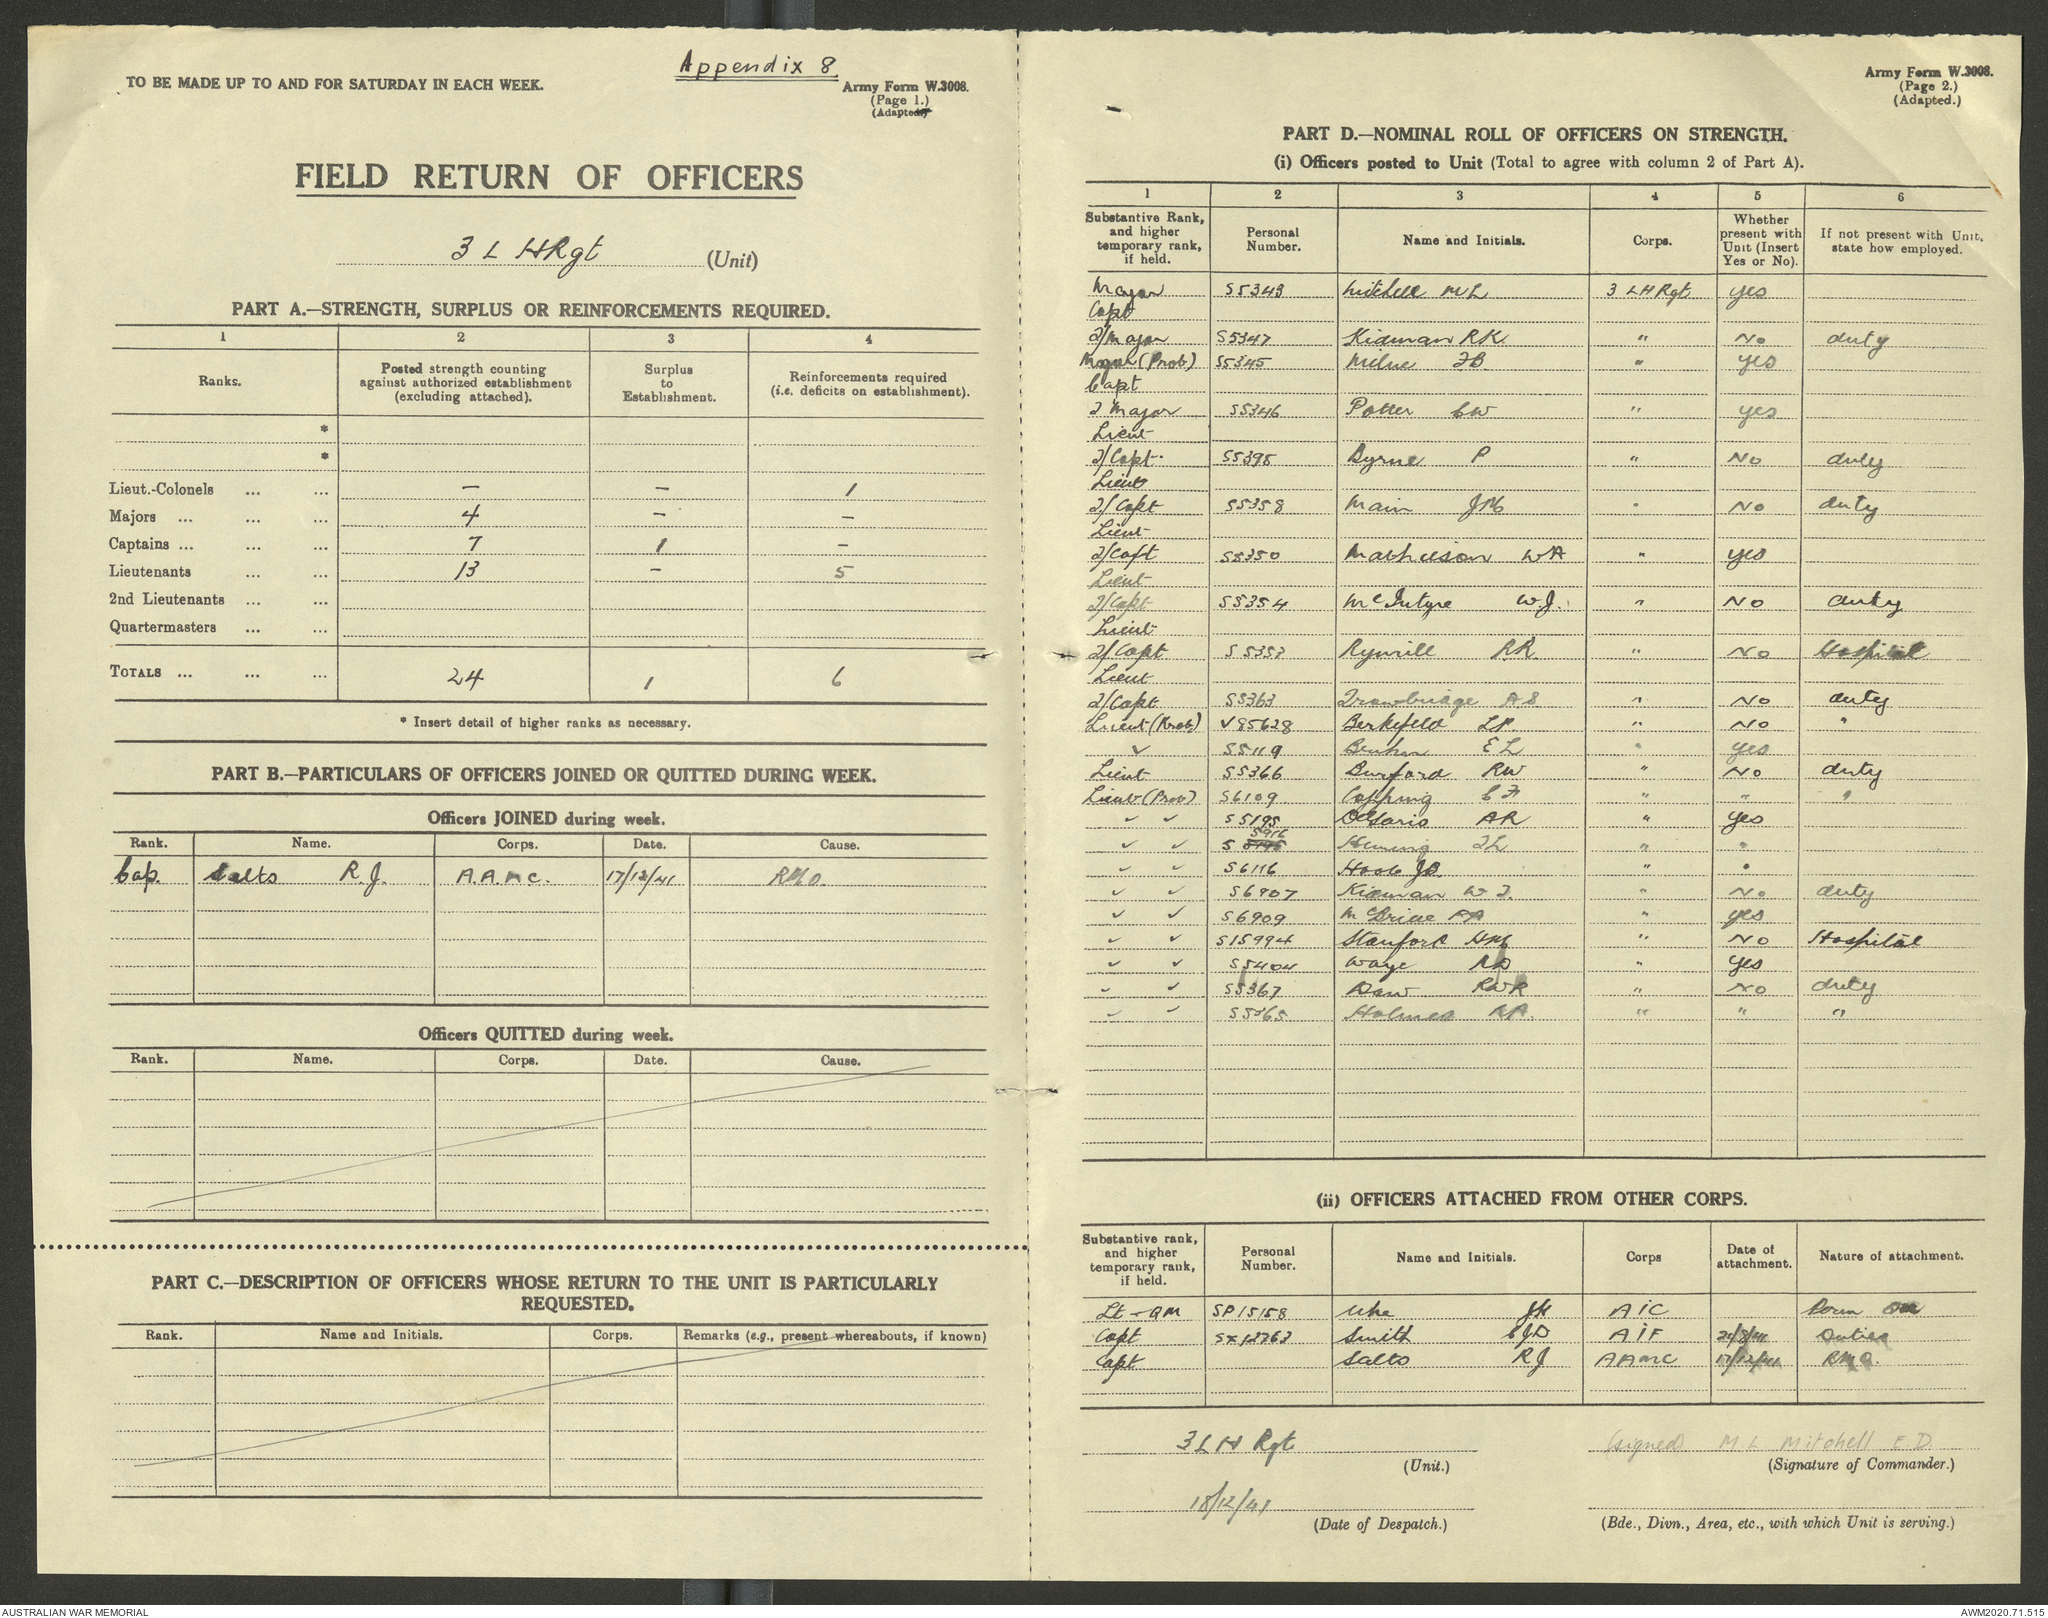 Appendix 8.
TO BE MADE UP TO AND FOR SATURDAY IN EACH WEEK.
Army Form W.3008.
(Page 1.)
(Adapted.)
FIELD RETURN OF OFFICERS
3 L H Rgt (Unit)
PART A.—STRENGTH, SURPLUS OR REINFORCEMENTS REQUIRED.
1 2 3 4
Ranks. Posted strength counting against authorized establishment (excluding attached). Surplus to Establishment. Reinforcements required (i.e. deficits on establishment).
*
*
Lieut.-Colonels ... ... — — 1
Majors ... ... ... 4 — —
Captains ... ... ... 7 1 —
Lieutenants ... ... 13 — 5
2nd Lieutenants ... ...
Quartermasters ... ...
TOTALS ... ... ... 24 1 6
* Insert detail of higher ranks as necessary.
PART B.—PARTICULARS OF OFFICERS JOINED OR QUITTED DURING WEEK.
Officers JOINED during week.
Rank. Name. Corps. Date. Cause.
Cap. Salts R.J. A.A.M.C. 17/12/41 RMO.
Officers QUITTED during week.
Rank. Name. Corps. Date. Cause.
PART C.—DESCRIPTION OF OFFICERS WHOSE RETURN TO THE UNIT IS PARTICULARLY
REQUESTED.
Rank. Name and Initials. Corps. Remarks (e.g., present whereabouts, if known)
Army Form W.3008.
(Page 2.)
(Adapted.)
PART D.—NOMINAL ROLL OF OFFICERS ON STRENGTH.
(i) Officers posted to Unit (Total to agree with column 2 of Part A).
1 2 3 4 5 6
Substantive Rank, and higher temporary rank, if held. Personal Number. Name and Initials. Corps. Whether present with Unit (Insert Yes or No). If not present with Unit, state how employed.
Major S5343 Mitchell ML 3 LH Rgt yes
Capt
T/Major S5347 Kidman RK " No duty
Major (Prob) S5345 Milne FB " yes
Capt
T Major S5346 Potter CW " yes
Lieut
T/Capt. S5395 Byrne P " No duty
Lieut
T/Capt S5358 Main JM " No duty
Lieut
T/Capt S5350 Mathieson WA " yes
Lieut
T/Capt S5354 McIntyre W.J. " No duty
Lieut
T/Capt S5353 Rymill RR " No Hospital
Lieut
T/Capt S5363 Trowbridge AS " No duty
Lieut (Prob) V85628 Berkefeld LP " No "
" S5119 EL " yes
Lieut S5366 Burford RW " No duty
Lieut (Prob) S6109 Copping CF " " "
" " S5195 DeGaris AR " yes
" " S 5916 Heming TL " "
" " S6116 JB. " "
" " S6907 Kidman W T. " No duty
" " S6909 McBride AA " yes
" " S15994 Stanford HM " No Hospital
" " S5404 Waye RD " yes
" " S5367 Daw RWR " No duty
" " S5365 Holmes RA. " " "
(ii) OFFICERS ATTACHED FROM OTHER CORPS.
Substantive rank, and higher temporary rank, if held. Personal Number. Name and Initials. Corps Date of attachment. Nature of attachment.
Lt - QM SP15158 JK AIC
Capt SX12763 Smith CJD AIF Duties
Capt Salts RJ AAMC 17/12/41 RMO.
3 L H Rgt
(Unit.)
(signed) M.L. Mitchell E.D.
(Signature of Commander.)
18/12/41
(Date of Despatch.)
(Bde., Divn., Area, etc., with which Unit is serving.)
AUSTRALIAN WAR MEMORIAL
AWM2020.71.515